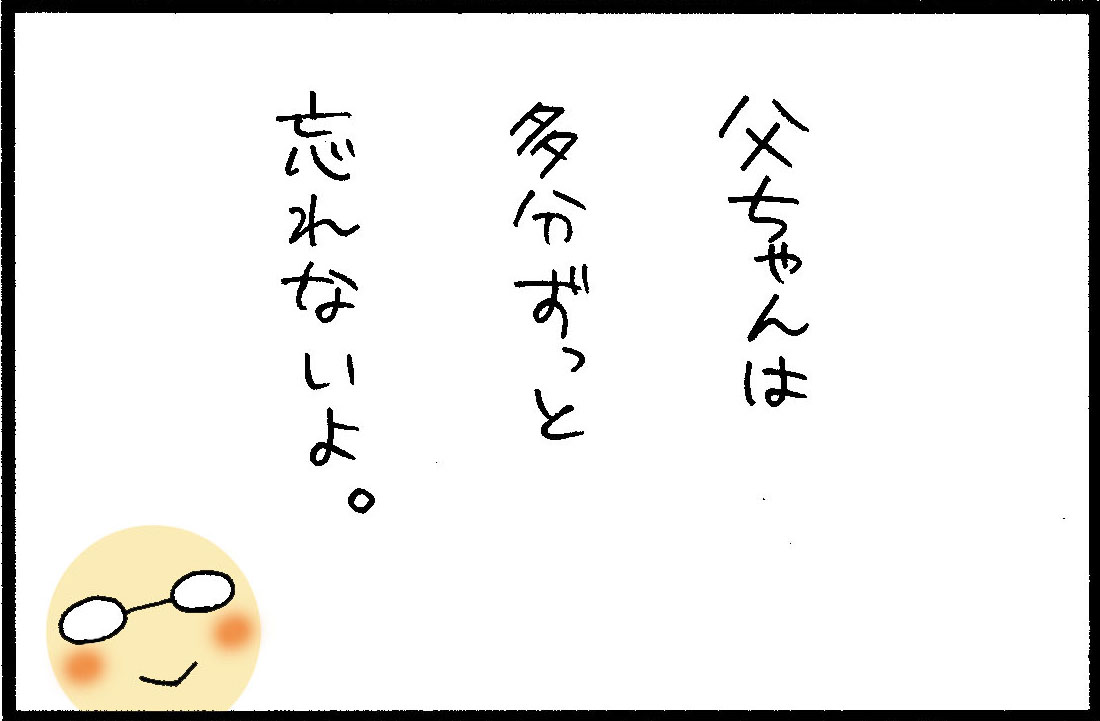 父ちゃんは
多分ずっと
忘れないよ。